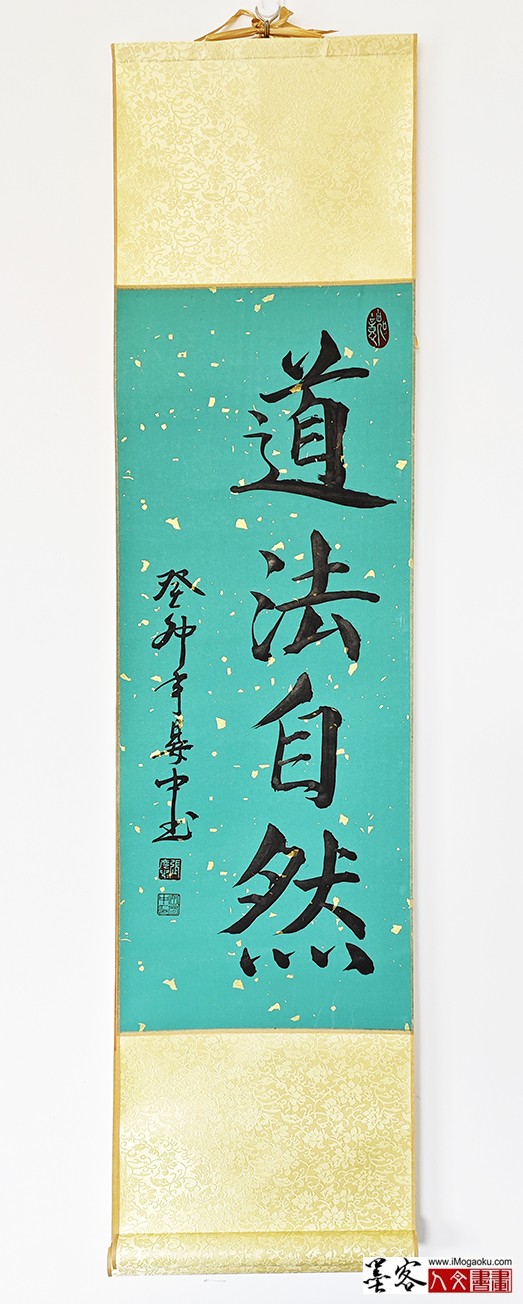 道法自然
癸卯年吴中书
墨客
www.iMogaoku.com
人文書畫